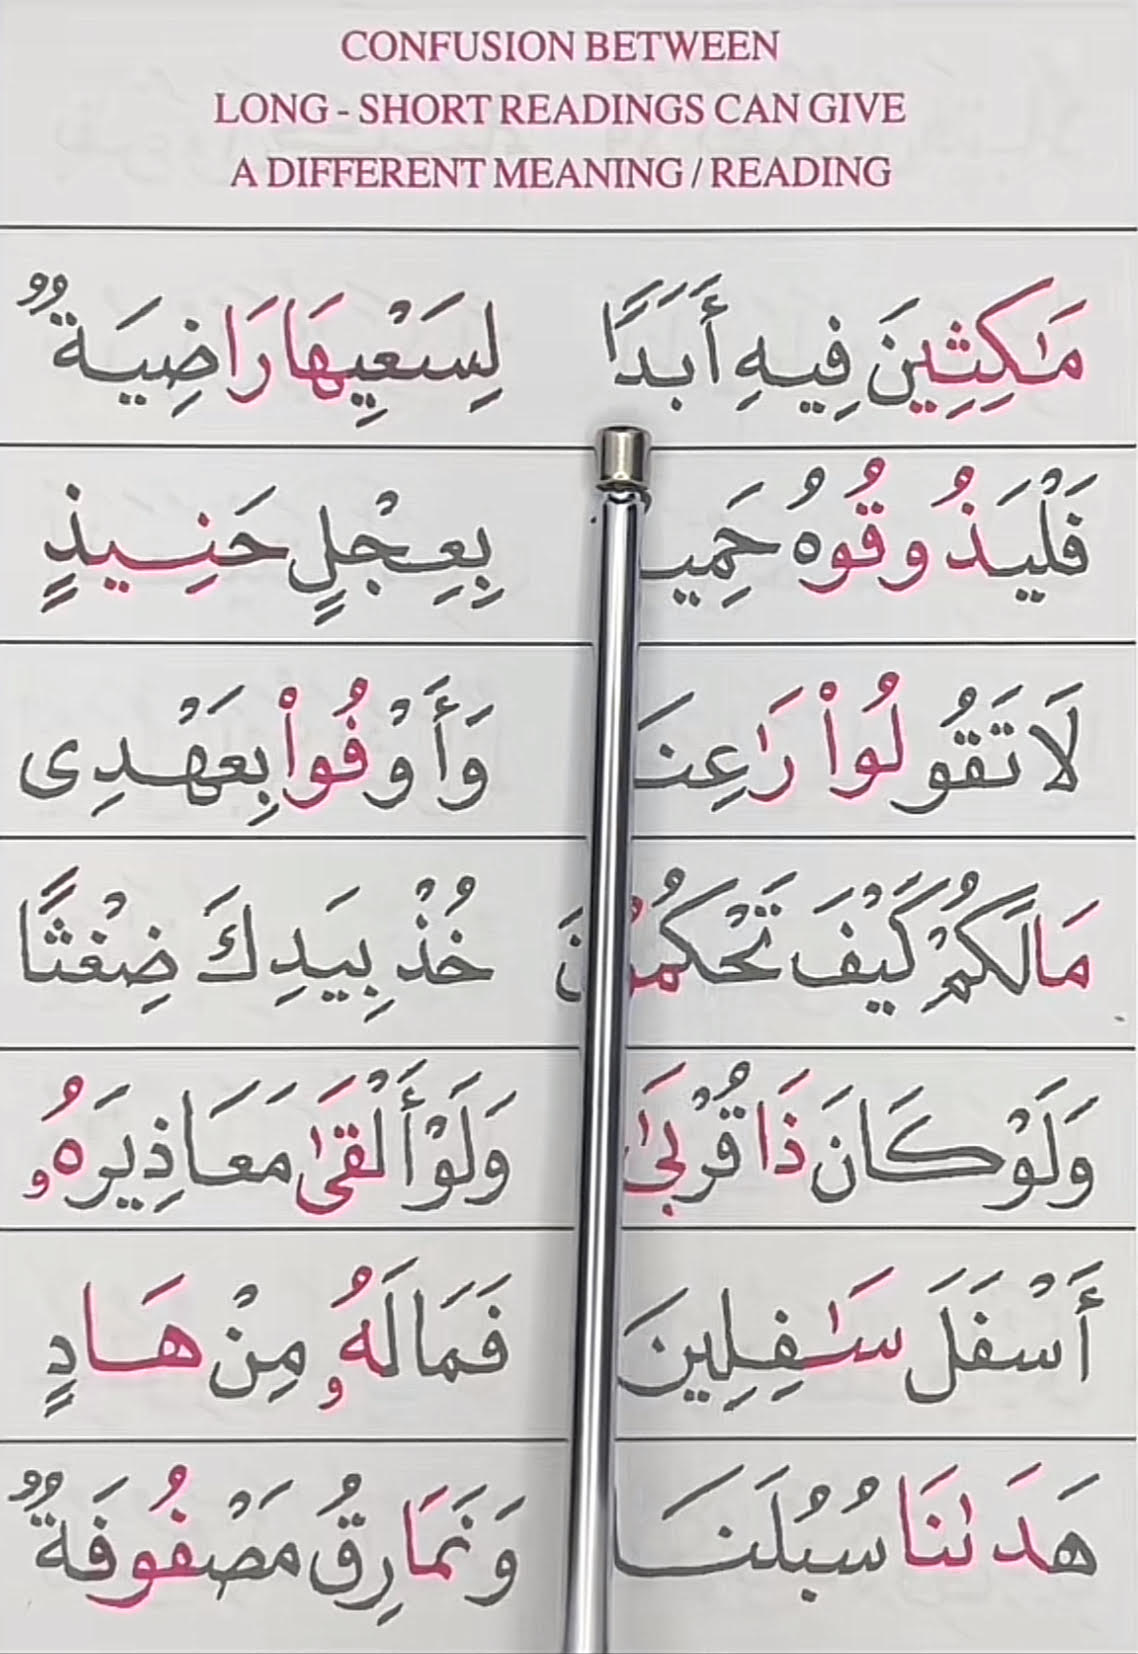 CONFUSION BETWEEN
LONG - SHORT READINGS CAN GIVE
A DIFFERENT MEANING / READING
مَـٰكِثِينَ فِيهِ أَبَدًا لِسَعْيِهَا رَاضِيَةٌ
فَلْيَذُوقُوهُ بِعِجْلٍ حَنِيذٍ
لَا تَقُولُواْ رَٰعِنَا وَأَوْفُواْ بِعَهْدِى
مَا لَكُمْ كَيْفَ تَحْكُمُونَ خُذْ بِيَدِكَ ضِغْثًا
وَلَوْ كَانَ ذَا قُرْبَىٰ وَلَوْ أَلْقَىٰ مَعَاذِيرَهُۥ
أَسْفَلَ سَـٰفِلِينَ فَمَا لَهُۥ مِنْ هَادٍ
هَدَىٰنَا سُبُلَنَا وَنَمَارِقُ مَصْفُوفَةٌ